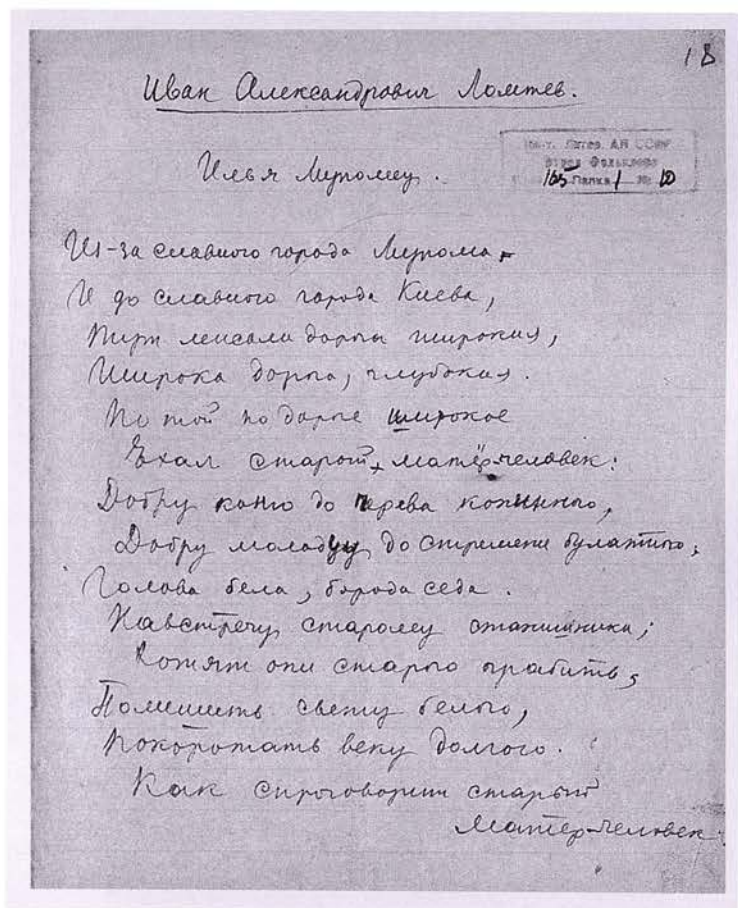 18
Иван Александрович Ломтев.
Инст. Литер. АН СССР
Отдел Фольклора
165 Папка 1 № 10
Илья Муромец.
Из-за славного города Мурома
И до славного города Киева,
лежали дороги широкия,
Широка дорога, глубокия.
По той по дороге широкое
Ехал старой, матёр-человек:
Добру коню до черева копинного,
Добру молодцу до стремени булатного;
Голова бела, борода седа.
Навстречу старому станишники;
Хотят они старого грабить,
Полишить свету белого,
Покоротать веку долгого.
Как спроговорит старый
матёр-человек: